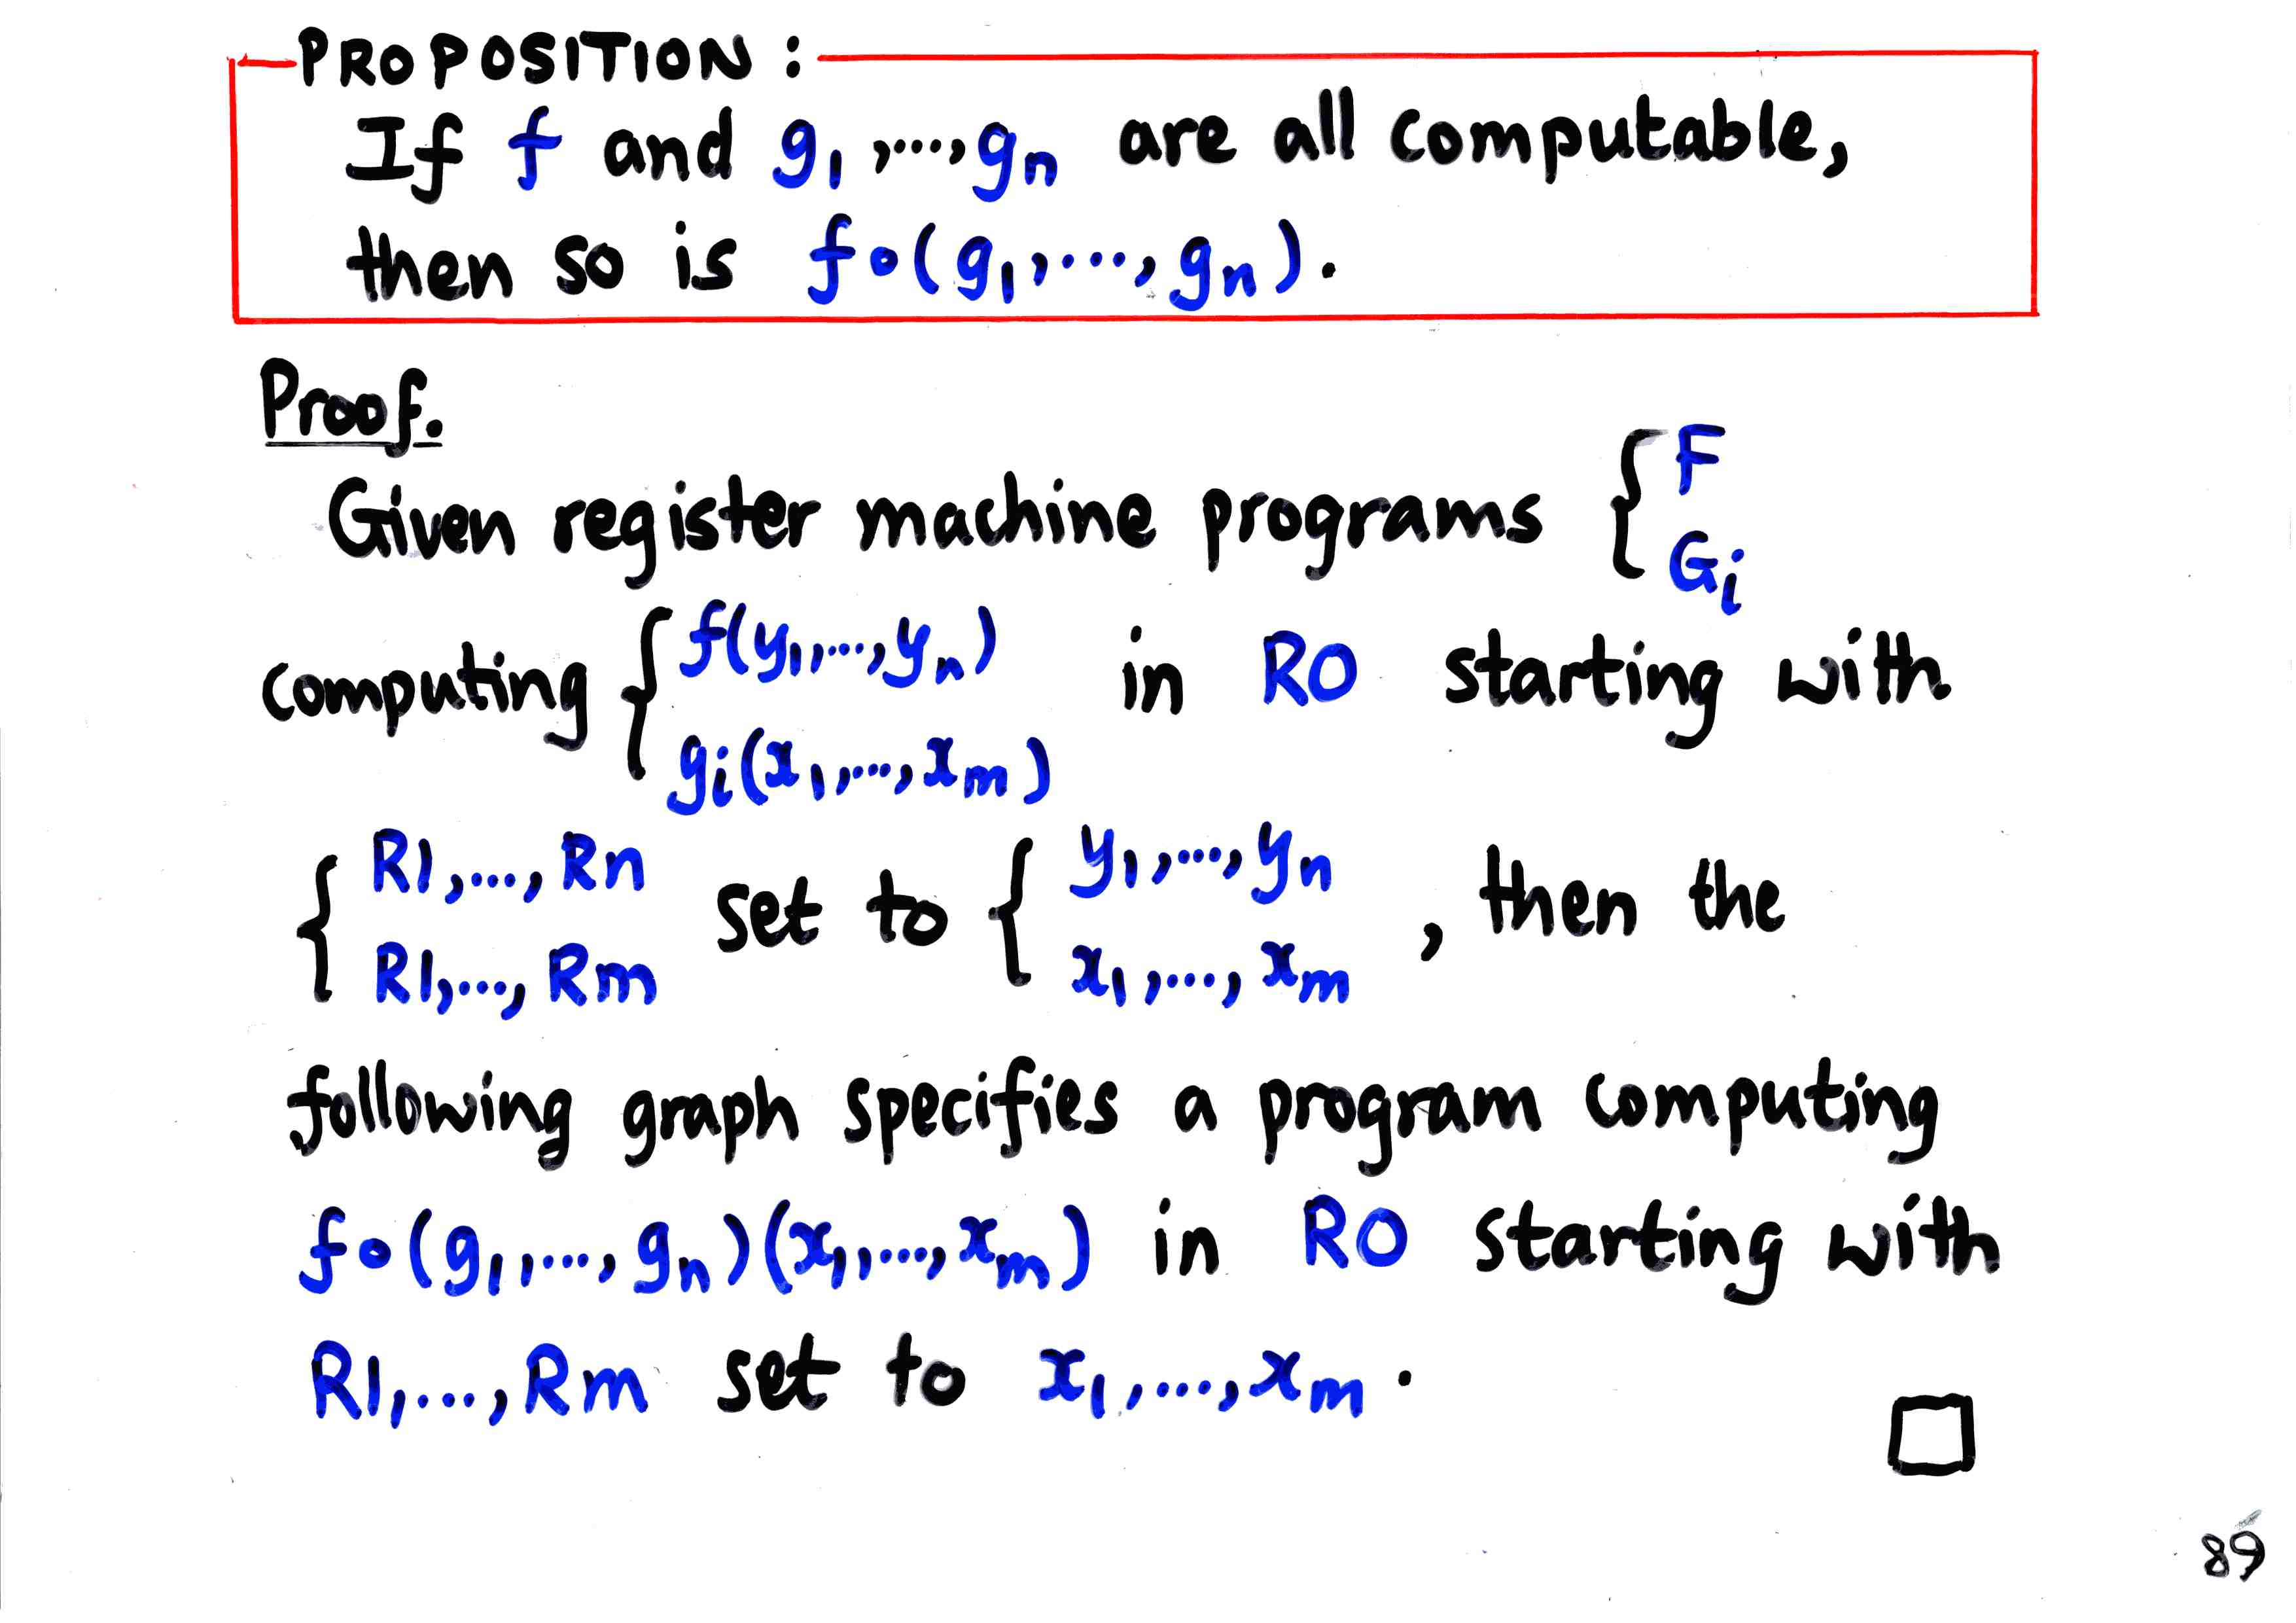 PROPOSITION:
If f and g1,...,gn are all computable,
then so is f∘(g1,...,gn).
Proof.
Given register machine programs { F
Gi
computing { f(y1,...,yn) in R0 starting with
gi(x1,...,xm)
{ R1,...,Rn set to { y1,...,yn , then the
R1,...,Rm x1,...,xm
following graph specifies a program computing
f∘(g1,...,gn)(x1,...,xm) in R0 starting with
R1,...,Rm set to x1,...,xm.
89